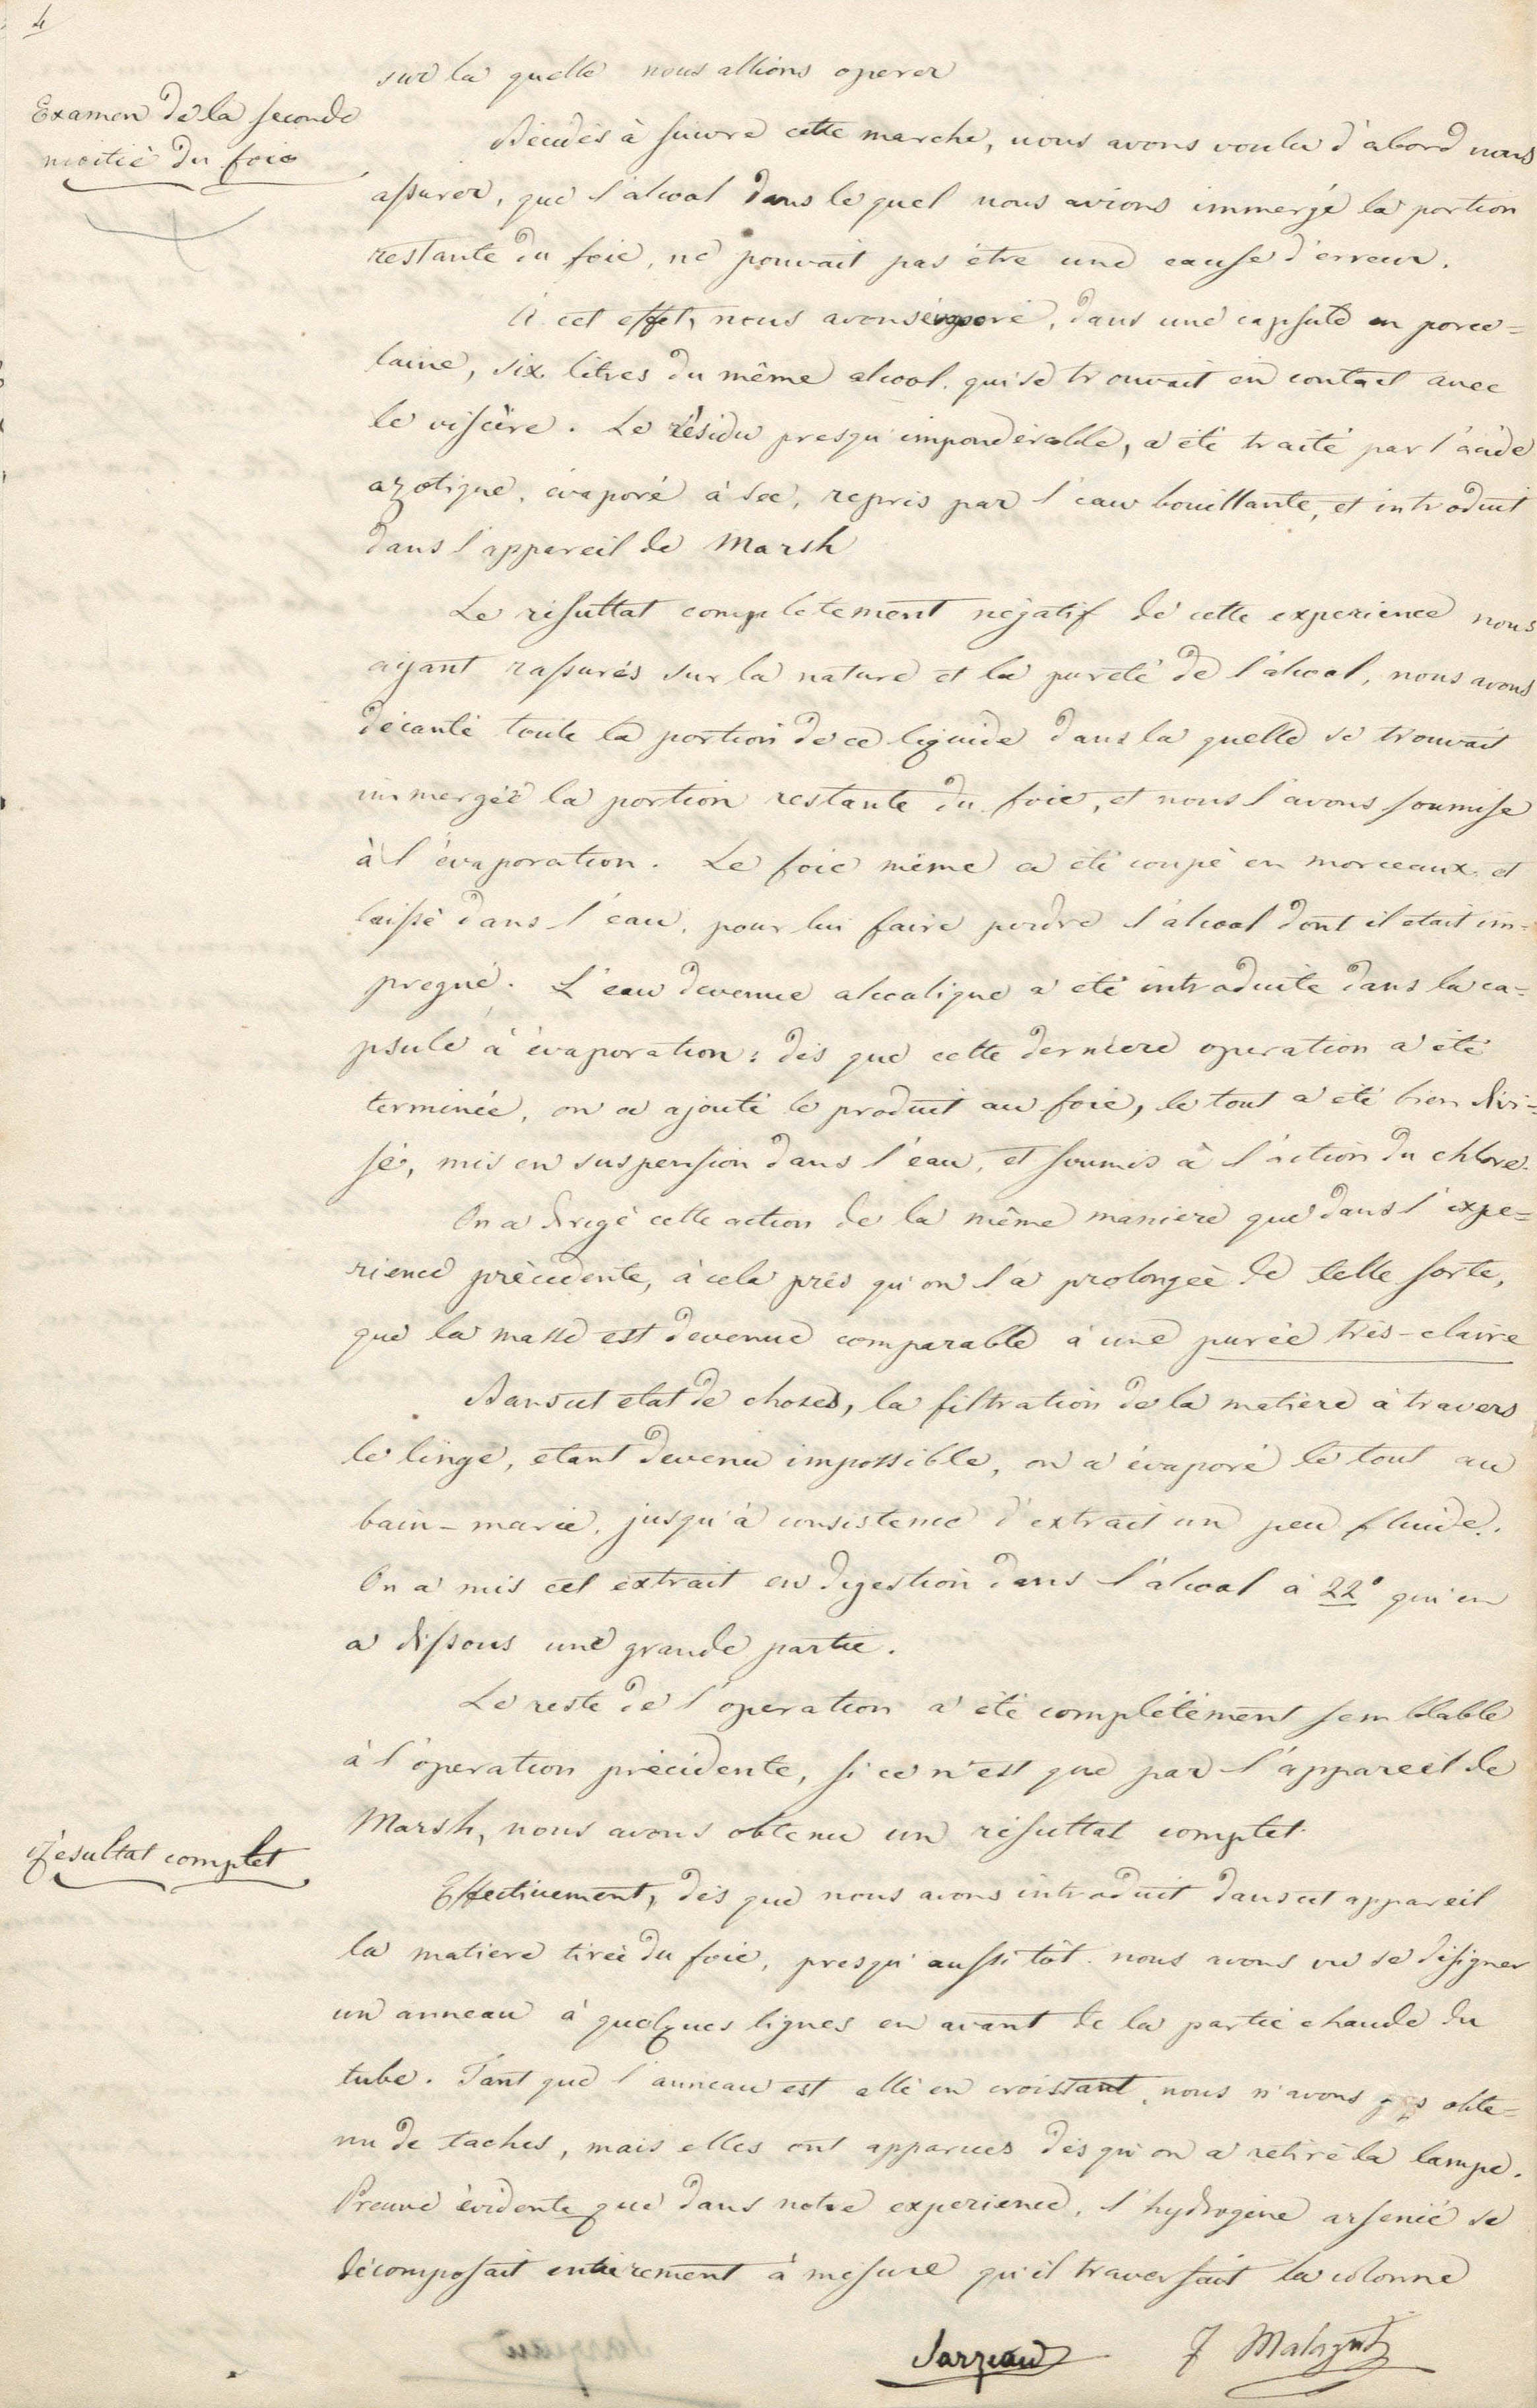 4
sur la quelle nous allions operer
Examen de la seconde
moitié du foie
Décidés à suivre cette marche, nous avons voulu d'abord nous
assurer, que l'alcool dans le quel nous avions immergé la portion
restante du foie, ne pouvait pas être une cause d'erreur.
A cet effet, nous avons évaporé, dans une capsule en porce=
laine, six litres du même alcool qui se trouvait en contact avec
le viscère. Le résidu presqu'impondérable, a été traité par l'acide
azotique, évaporé à sec, repris par l'eau bouillante, et introduit
dans l'appareil de Marsh
Le résultat completement négatif de cette experience nous
ayant rassurés sur la nature et la pureté de l'alcool, nous avons
décanté toute la portion de ce liquide dans la quelle se trouvait
immergée la portion restante du foie, et nous l'avons soumise
à l'évaporation. Le foie même a été coupé en morceaux et
laissé dans l'eau, pour lui faire perdre l'alcool dont il etait im=
pregné. L'eau devenue alcoolique a été introduite dans la ca=
psule à évaporation: dès que cette derniere operation a été
terminée, on a ajouté le produit au foie, le tout a été bien divi=
sé, mis en suspension dans l'eau, et soumis à l'action du chlore.
On a dirigé cette action de la même maniere que dans l'expe=
rience précedente, à cela près qu'on l'a prolongée de telle sorte,
que la masse est devenue comparable à une purée très-claire
Dans cet etat de choses, la filtration de la matière à travers
le linge, etant devenu impossible, on a évaporé le tout au
bain-marie, jusqu'à consistence d'extrait un peu fluide.
On a mis cet extrait en digestion dans l'alcool à 22° qui en
a dissous une grande partie.
Le reste de l'operation a été complètement semblable
à l'operation précedente, si ce n'est que par l'appareil de
Marsh, nous avons obtenu un résultat complet.
Résultat complet
Effectivement, dès que nous avons introduit dans cet appareil
la matiere tirée du foie, presqu'aussitôt nous avons vu se désigner
un anneau à quelques lignes en avant de la partie chaude du
tube. Tant que l'anneau est allé en croissant, nous n'avons pas obte=
nu de taches, mais elles ont apparues dès qu'on a retiré la lampe.
Preuve évidente que dans notre experience, l'hydrogène arsenié se
décomposait entierement à mesure qu'il traversait la colonne
Sarzeau J Malaguti